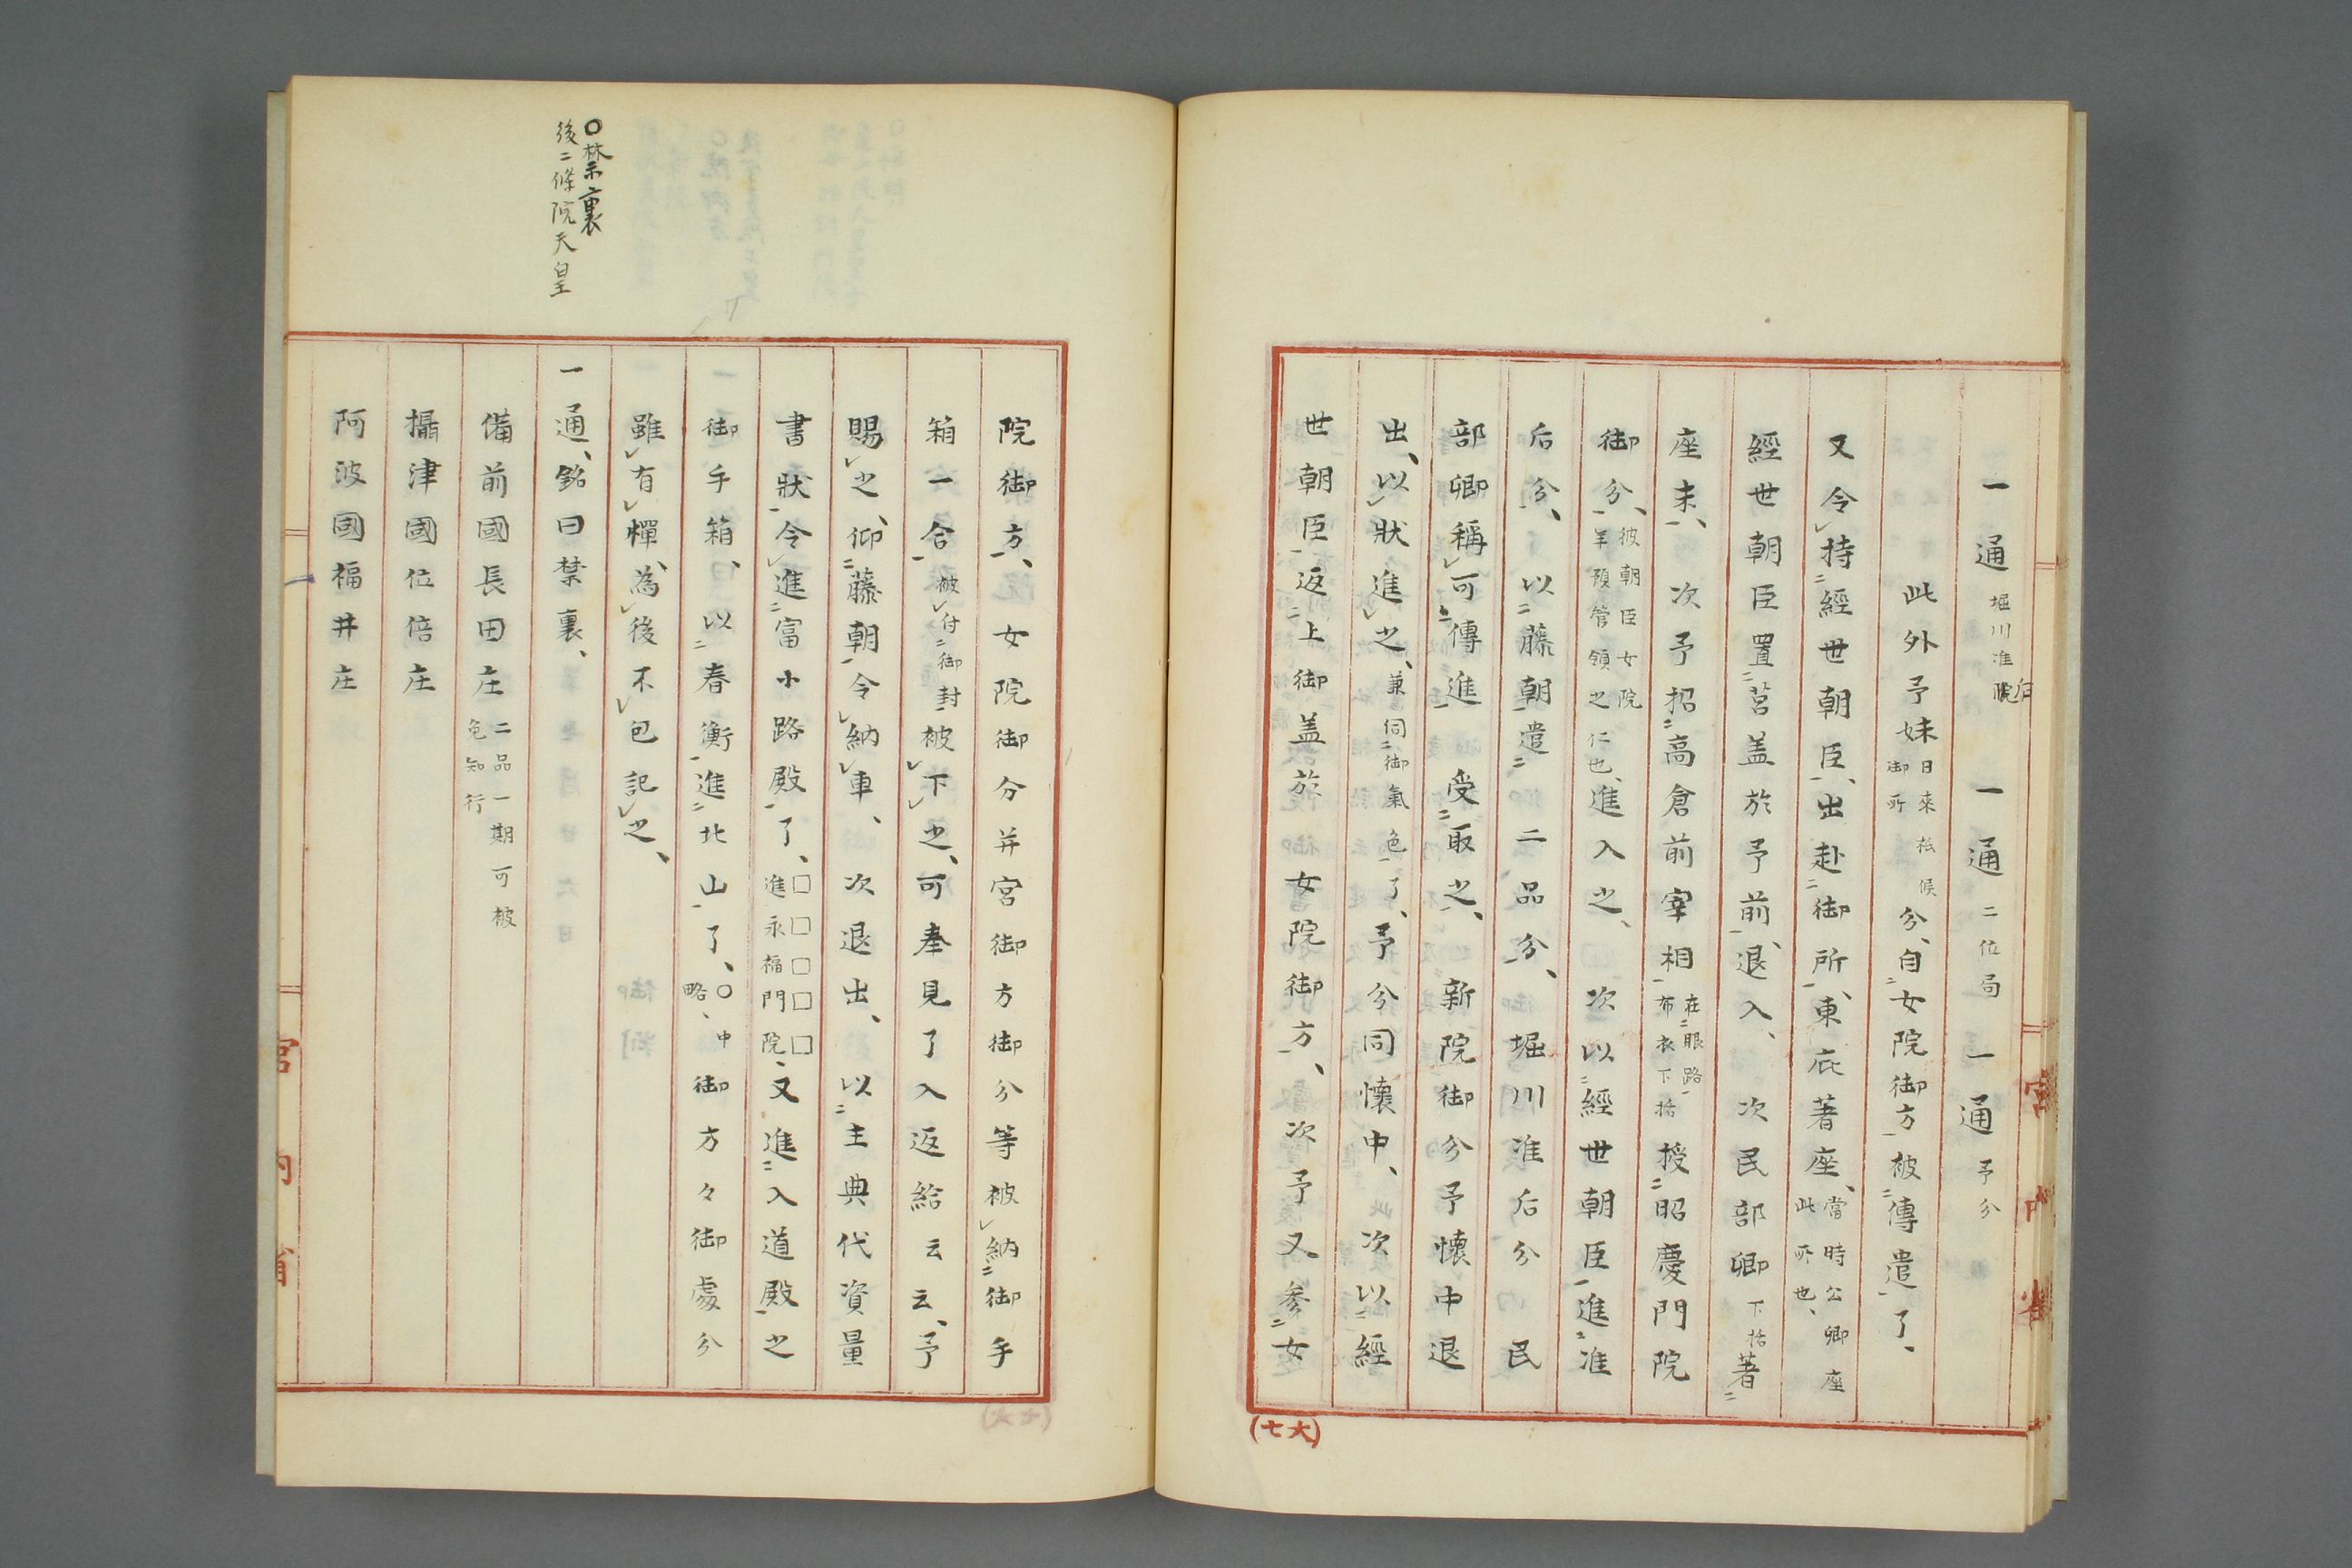 一通堀川准后一通二位局一通予分
此外予妹日来祗候御所分、自女院御方被傳遣了、
又令持經世朝臣、出赴御所、東庇著座、當時公卿座此所也、
經世朝臣置莒盖於予前、退入、次民部卿下括著
座末、次予招高倉前宰相在眼路布衣下括授昭慶門院
御分、彼朝臣女院年預管領之仁也、進入之、次以經世朝臣進准
后分、以藤朝遣二品分、堀川准后分民
部卿稱可傳進受取之、新院御分予懐中退
出、以狀進之、兼伺御氣色了、予分同懐中、次以經
世朝臣返上御盖於御女院御方、次予又參女
院御方、女院御分并宮御方御分等被納御手
箱一合被付御封被下之、可奉見了入返給云云、予
賜之、仰藤朝令納車、次退出、以主典代資量
書狀令進富小路殿了、□□□□□進永福門院、又進入道殿之
御手箱、以春衡進北山了、〇中略、御方々御處分
雖有憚、為後不包記之、
〇禁裏
後二條院天皇
一通、銘曰禁裏、
備前國長田庄二品一期可被免知行
攝津國位倍庄
阿波國福井庄
宮內省
宮內省
(七大)